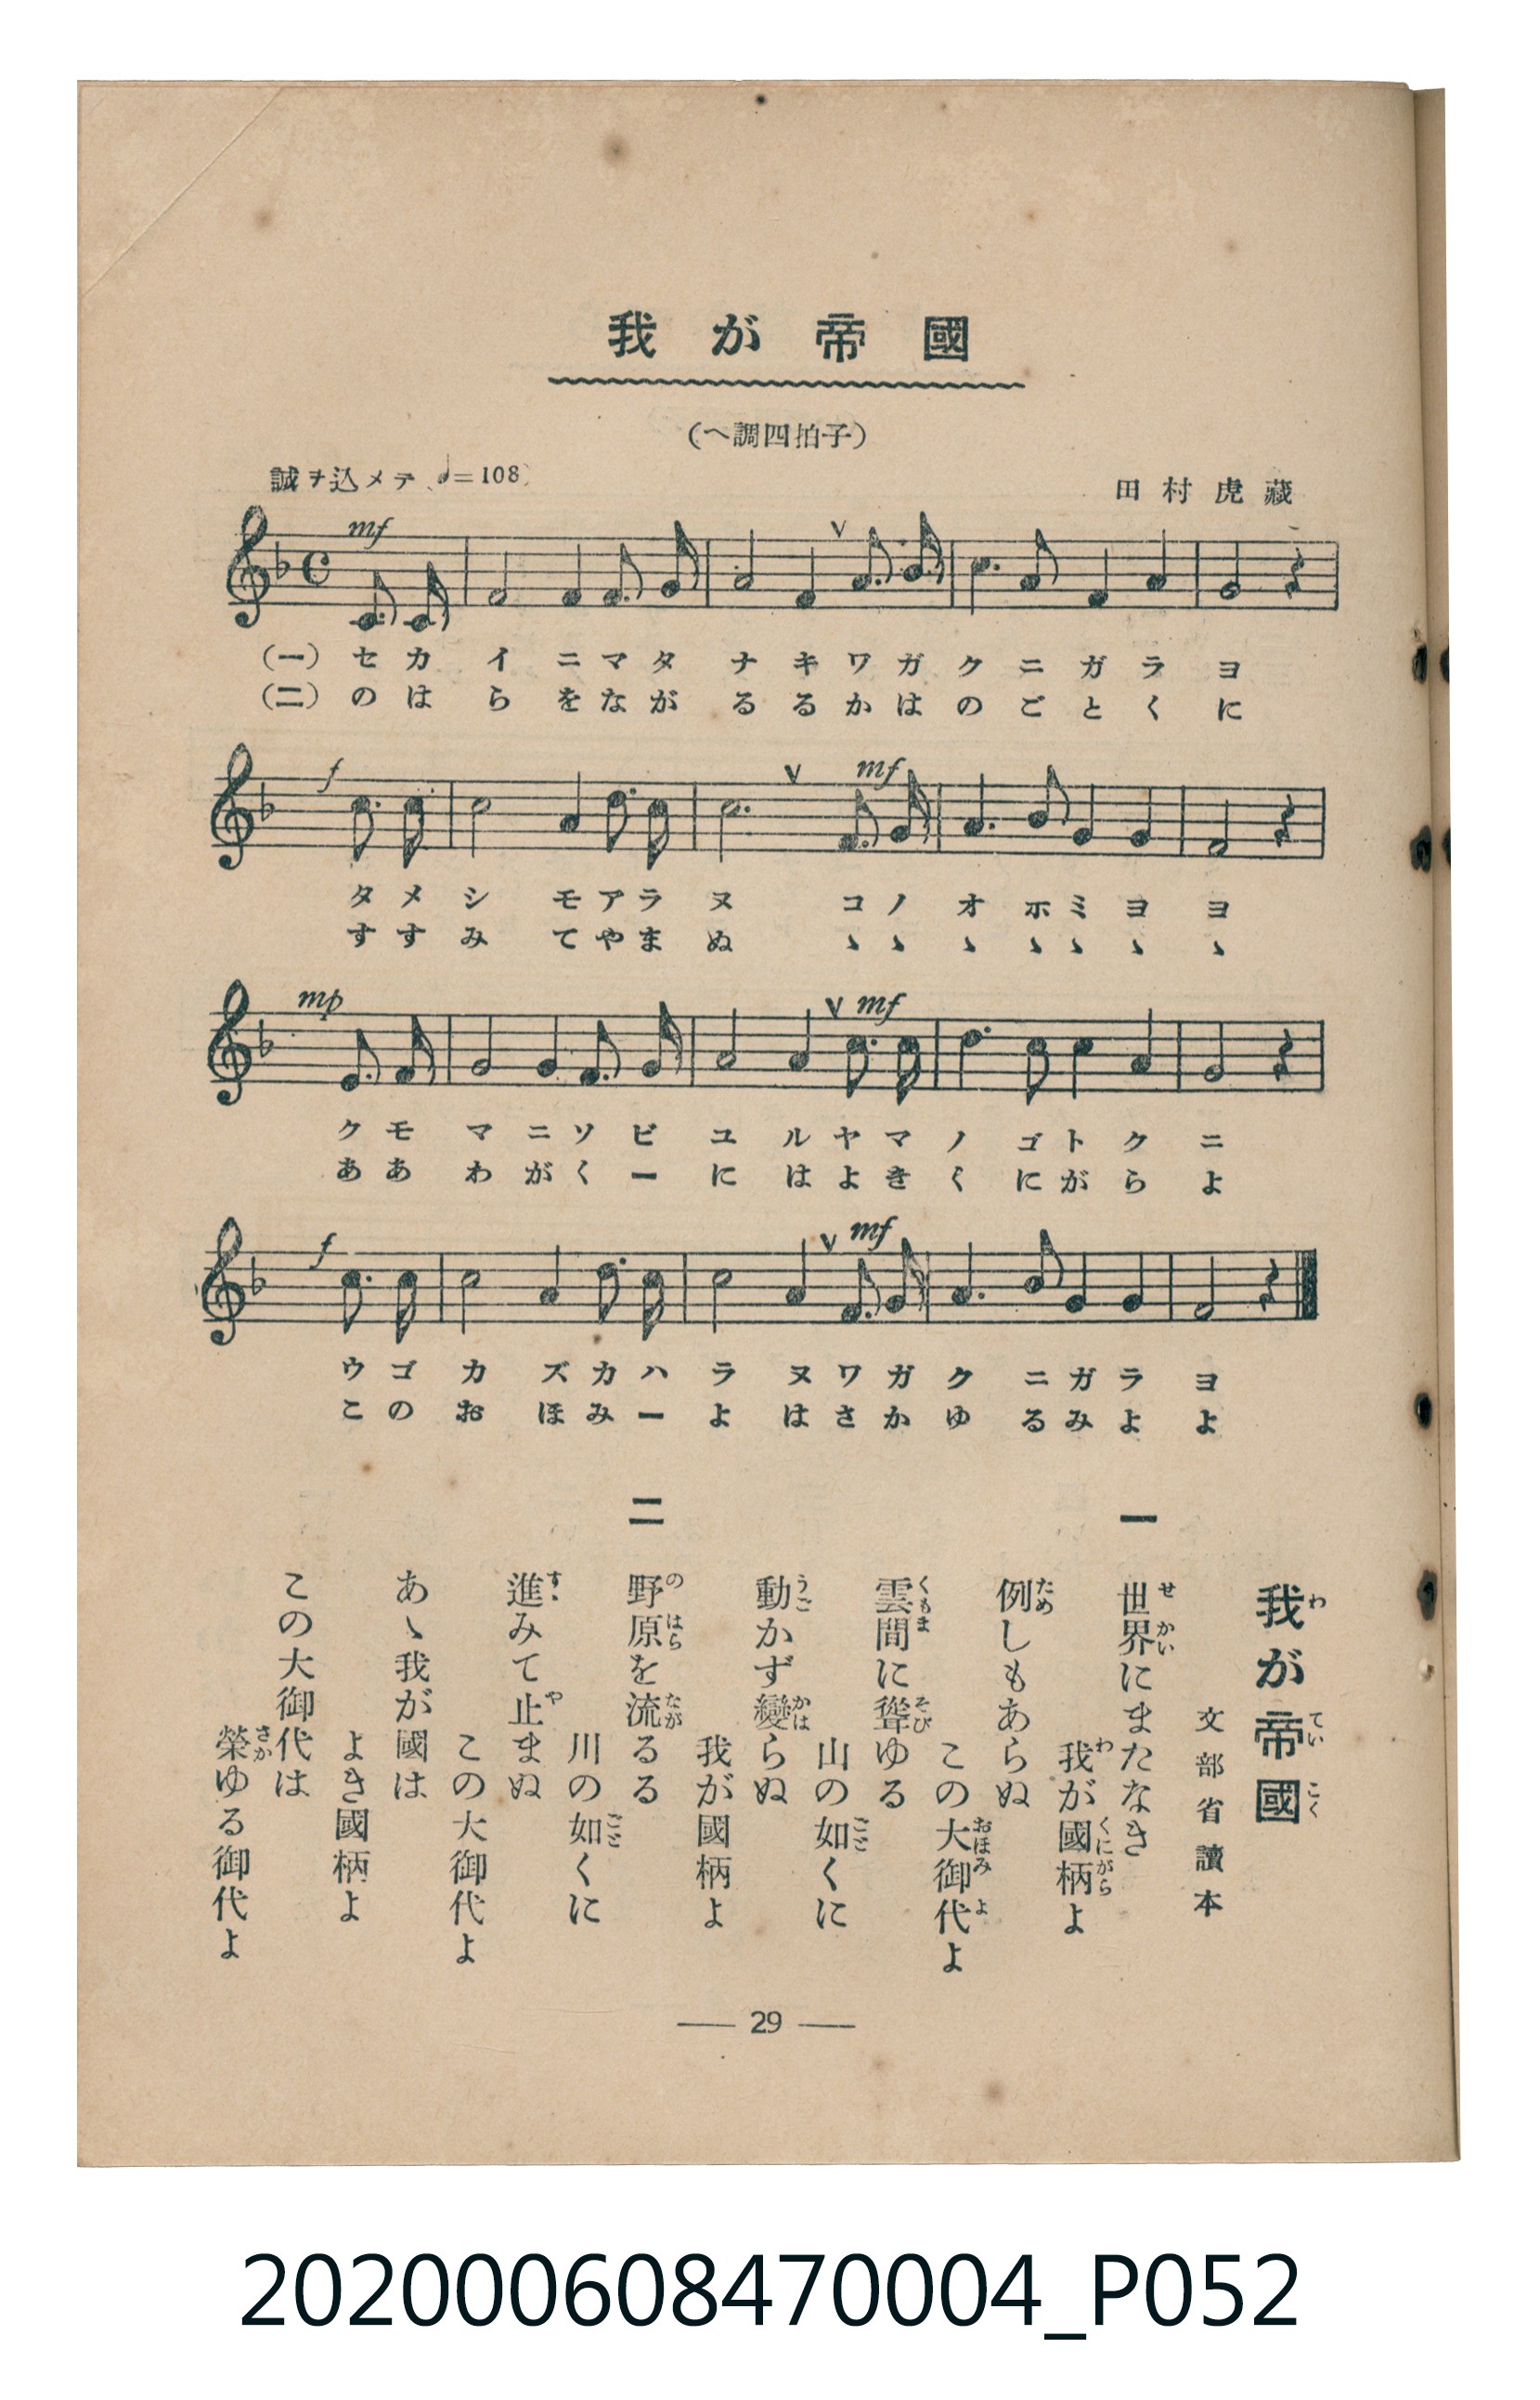 我が帝國
(ヘ調四拍子)
誠ヲ込メテ、♩=108
田村虎藏
mf
(一)セカイニマタナキワガクニガラヨ
(二)のはらをながるるかはのごとくに
f mf
タメシモアラヌ コノオホミヨヨ
すすみてやまぬ ヽヽヽヽヽヽヽ
mp mf
クモマニソビユルヤマノゴトクニ
ああわがくーにはよきくにがらよ
f mf
ウゴカズカハラヌワガクニガラヨ
このおほみーよはさかゆるみよよ
我が帝國
わ てい こく
文部省讀本
一
世界にまたなき
せ かい
我が國柄よ
わ くにがら
例しもあらぬ
ため
この大御代よ
おほみ よ
雲間に聳ゆる
くもま そび
山の如くに
ごと
動かず變らぬ
うご かは
我が國柄よ
二
野原を流るる
の はら なが
川の如くに
ごと
進みて止まぬ
すゝ や
この大御代よ
あゝ我が國は
よき國柄よ
この大御代は
榮ゆる御代よ
さか
— 29 —
202000608470004_P052